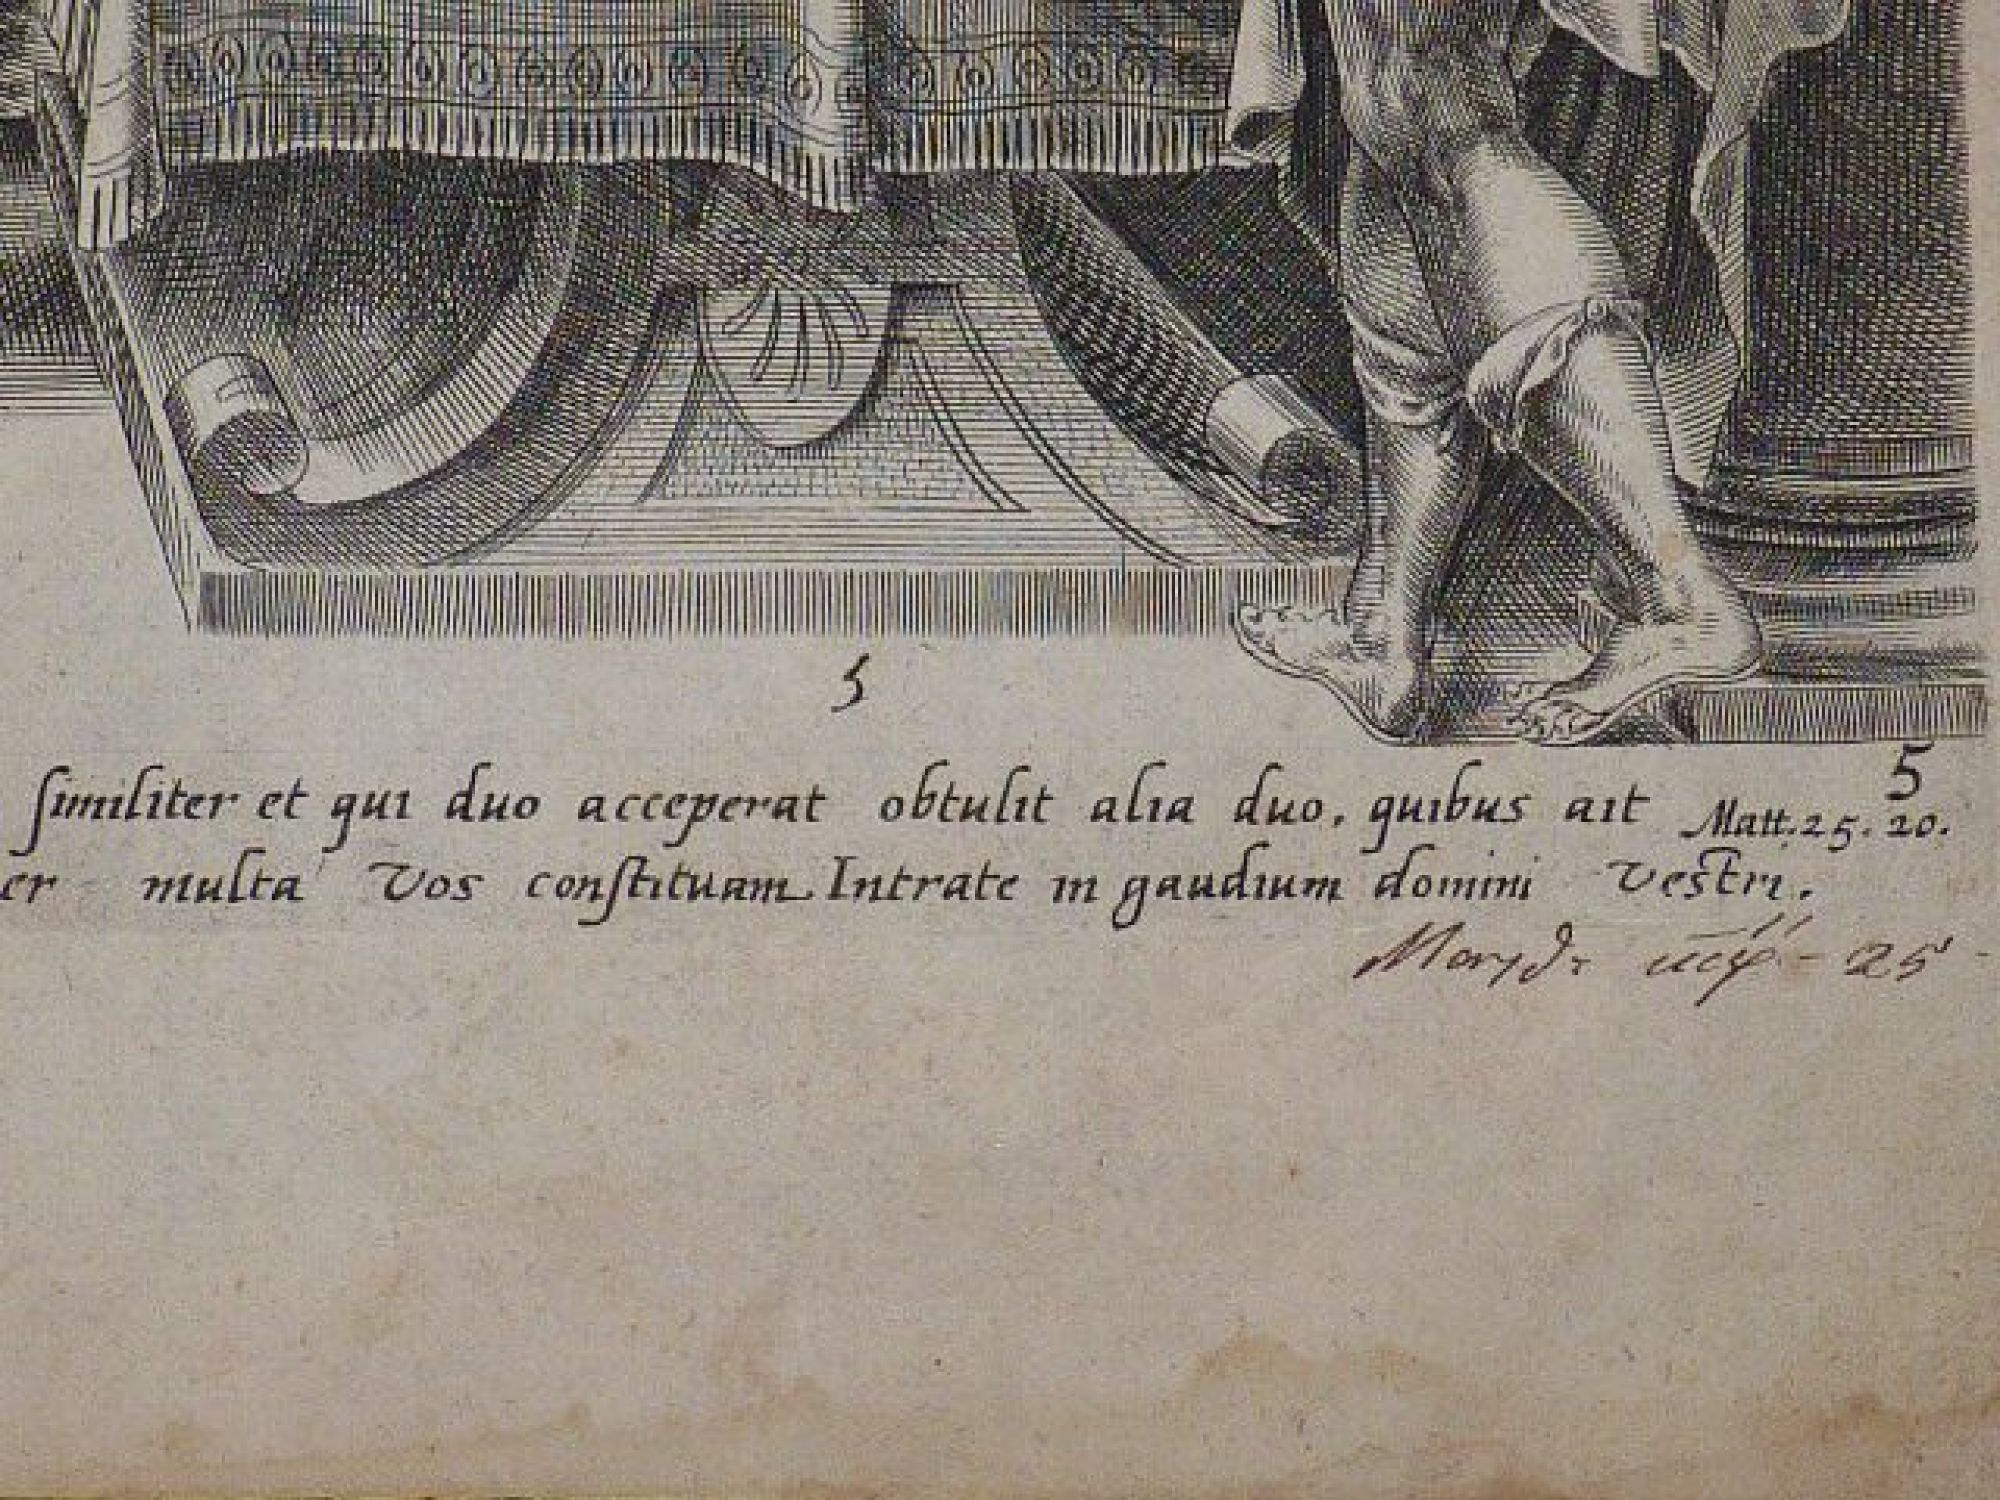 5
5
similiter et qui duo acceperat obtulit alia duo, quibus ait Matt. 25. 20.
er multa vos constituam Intrate in gaudium domini vestri.
25